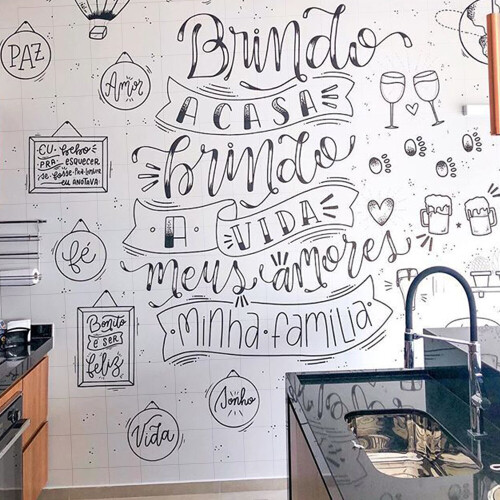 PAZ
Amor
EU bebo
PRA ESQUECER
se fosse pra lembrar
EU ANOTAVA
Fé
Bonito
é ser
feliz
Vida
Sonho
Brindo
A CASA
brindo
A VIDA
meus amores
minha família